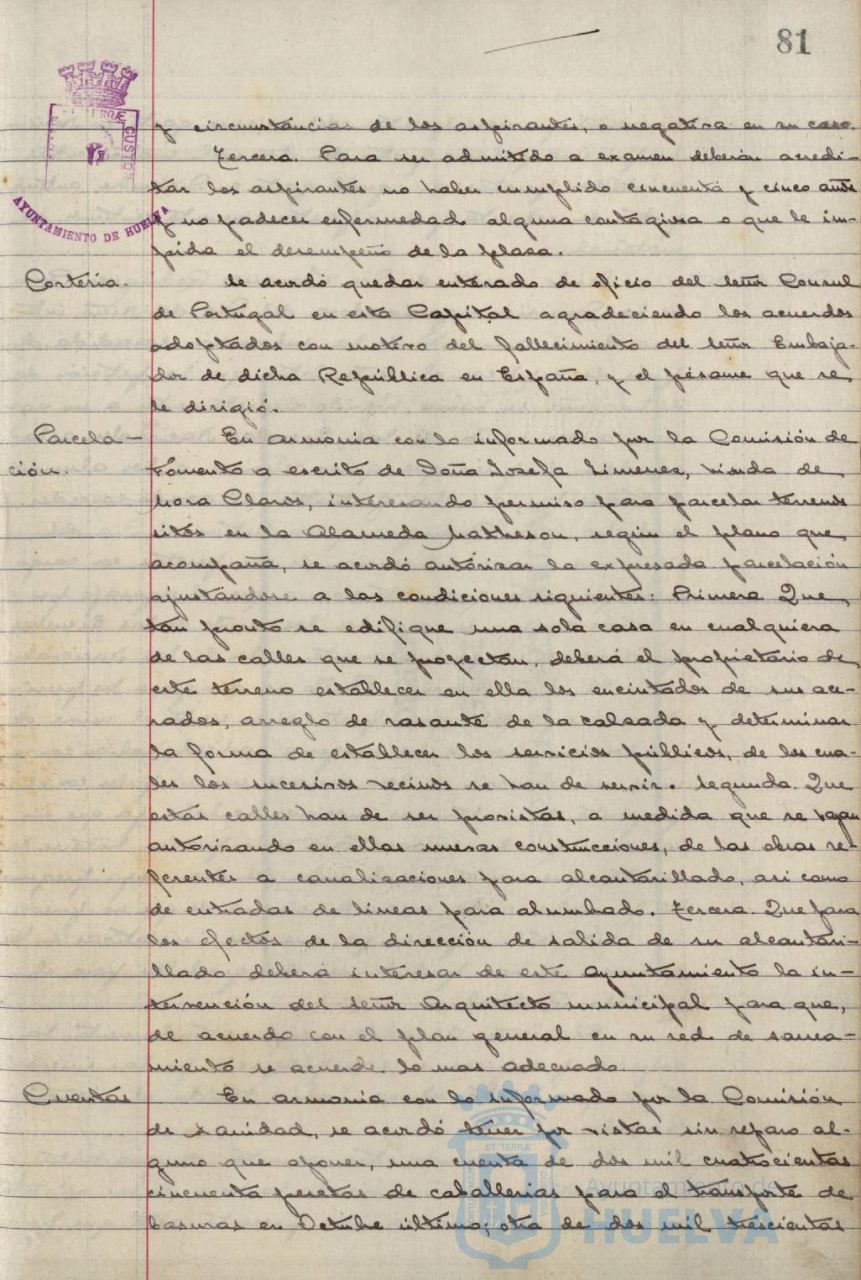 81
TERRÆ CUSTO
AYUNTAMIENTO DE HUELVA
y circunstancias de los aspirantes, o negativa en su caso.
Tercera. Para ser admitido a examen deberán acredi-
tar los aspirantes no haber cumplido cincuenta y cinco años
y no padecer enfermedad alguna contagiosa o que le im-
pida el desempeño de la plasa.
Cortería.
Se acordó quedar enterado de oficio del señor Consul
de Portugal en esta Capital agradeciendo los acuerdos
adoptados con motivo del fallecimiento del señor Embaja-
dor de dicha República en España, y el pésame que se
le dirigió.
Parcela-
ción.
En armonia con lo informado por la Comisión de
Fomento a escrito de Doña Josefa Jimenez, viuda de
Mora Claros, interesando permiso para parcelar terrenos
sitos en la Alameda Matheson, según el plano que
acompaña, se acordó autorizar la expresada parcelación
ajustándose a las condiciones siguientes: Primera Que,
tan pronto se edifique una sola casa en cualquiera
de las calles que se proyectan, deberá el propietario de
este terreno establecer en ella los encintados de sus ace-
rados, arreglo de rasante de la calsada y determinar
la forma de establecer los servicios públicos, de los cua-
les los sucesivos vecinos se han de servir. Segunda. Que
estas calles han de ser provistas, a medida que se vayan
autorizando en ellas nuevas construcciones, de las obras re-
ferentes a canalizaciones para alcantarillado, asi como
de entradas de lineas para alumbado. Tercera. Que para
los efectos de la dirección de salida de su alcantari-
llado deberá interesar de este Ayuntamiento la in-
tervención del señor Arquitecto municipal para que,
de acuerdo con el plan general en su red de sanea-
miento se acuerde lo mas adecuado.
Cuentas
En armonia con lo informado por la Comisión
de sanidad, se acordó tener por vistas sin reparo al-
guno que oponer, una cuenta de dos mil cuatrocientas
cincuenta pesetas de caballerias para el transporte de
basuras en Octubre último; otra de dos mil trescientas
ET TERRÆ
Ayuntamiento de
HUELVA